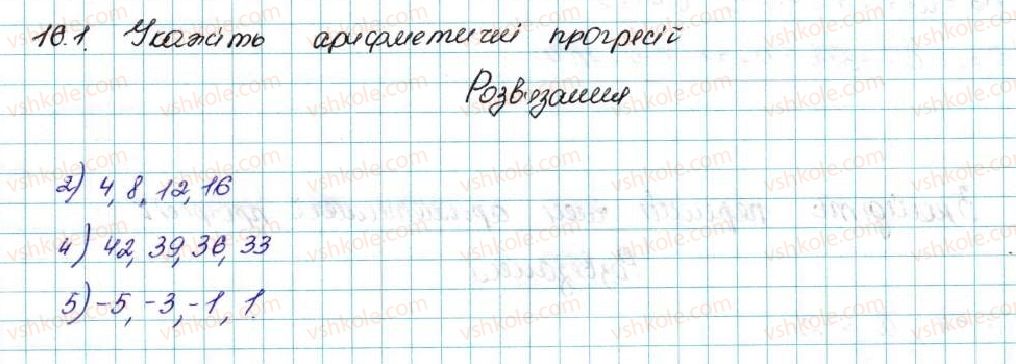 16.1. Укажіть арифметичні прогресії
Розв'язання
2) 4, 8, 12, 16
4) 42, 39, 36, 33
5) -5, -3, -1, 1.